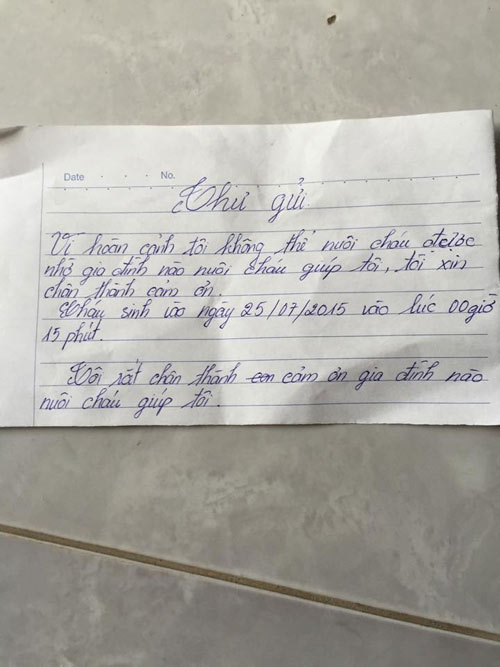 Date No.
Thư gửi
Vì hoàn cảnh tôi không thể nuôi cháu được
nhờ gia đình nào nuôi cháu giúp tôi, tôi xin
chân thành cảm ơn.
Cháu sinh vào ngày 25/07/2015 vào lúc 00giờ
15 phút.
Tôi rất chân thành con cảm ơn gia đình nào
nuôi cháu giúp tôi.